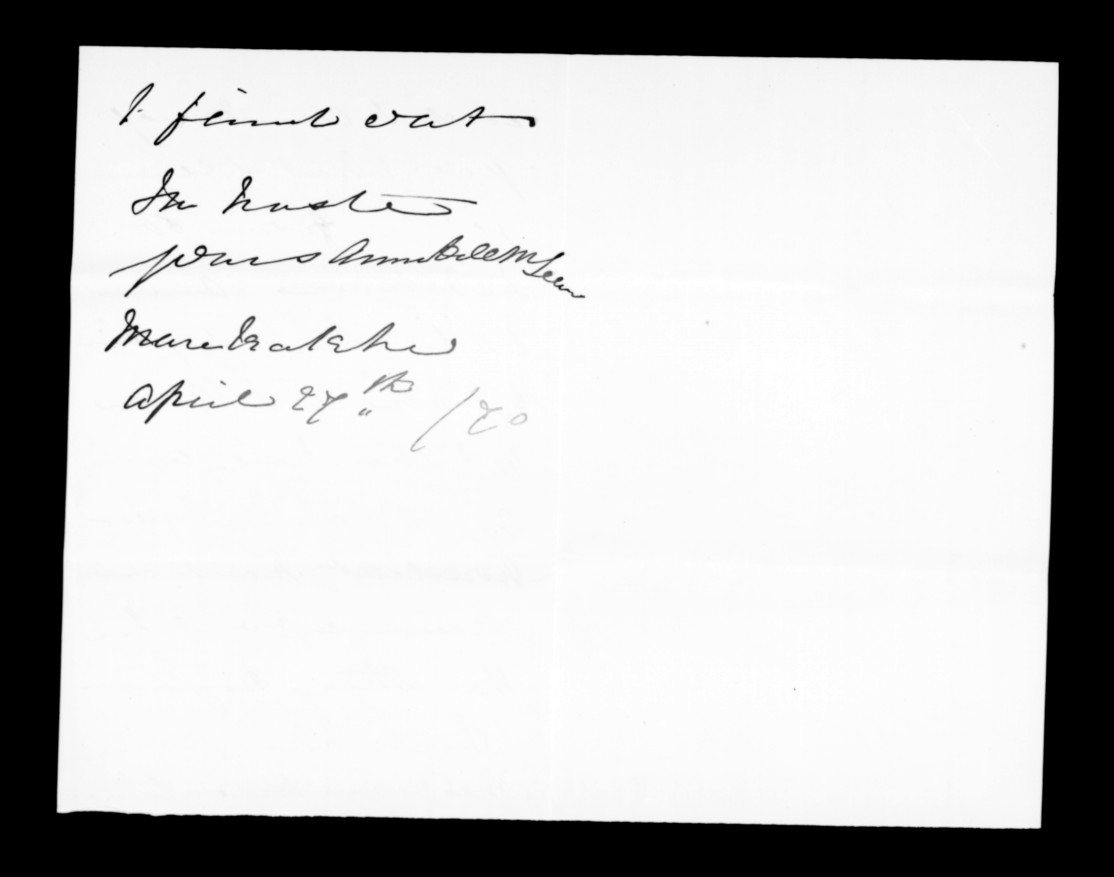 I find out
In haste
yours Annabella McLean
Maraekakaho
April 27th /70